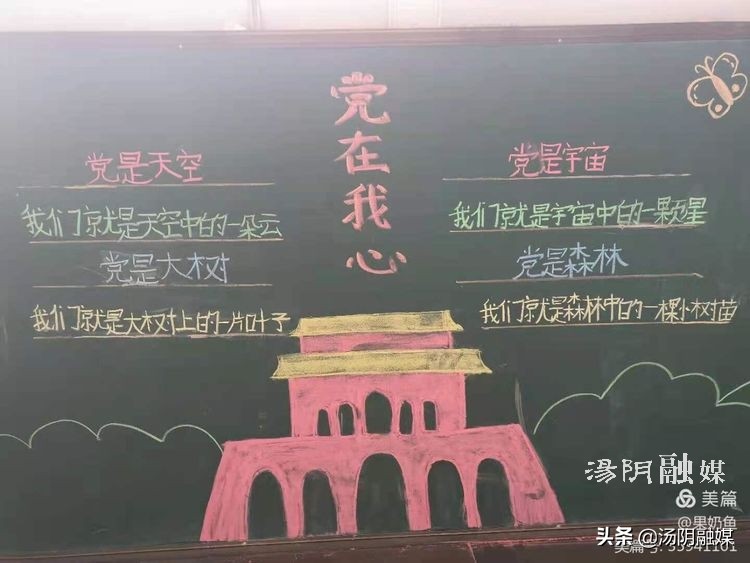 党在我心
党是天空
我们就是天空中的一朵云
党是大树
我们就是大树上的一片叶子
党是宇宙
我们就是宇宙中的一颗星
党是森林
我们就是森林中的一棵小树苗
湯阴融媒
美篇
@果奶鱼
美篇号: 33941101
头条 @汤阴融媒